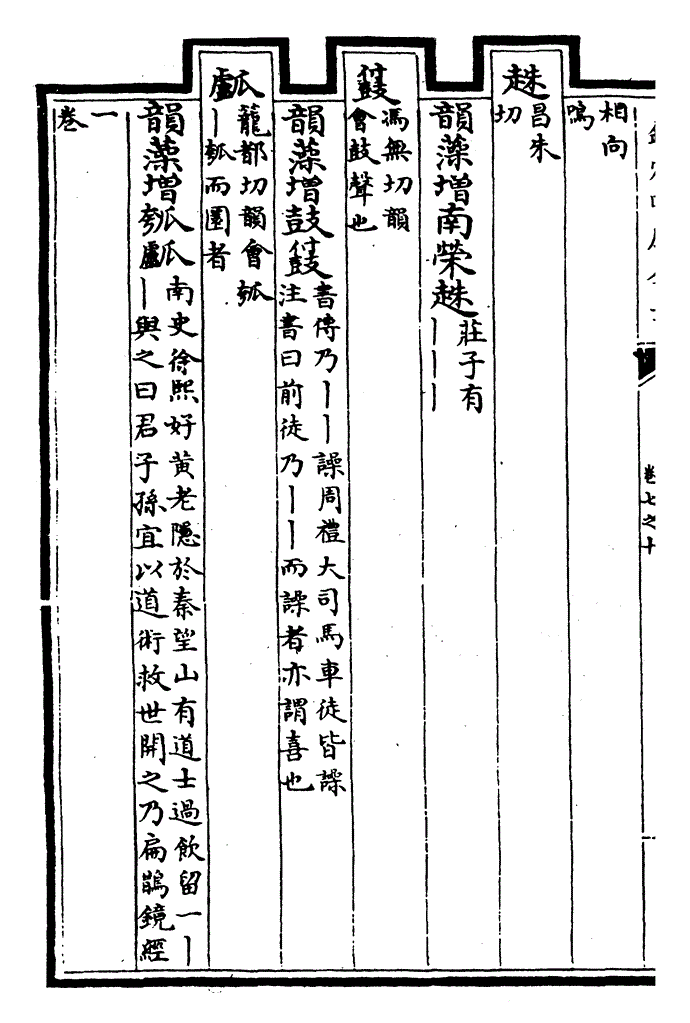 卷七之十
相向
鳴
趎 昌朱
切
韻藻增南榮趎 莊子有
丨丨丨
馮無切韻
會鼓聲也
韻藻增鼓 書傳乃丨丨譟周禮大司馬車徒皆譟
注書曰前徒乃丨丨而譟者亦謂喜也
𤬛 籠都切韻會瓠
丨瓠而圜者
韻藻增瓠𤬛 南史徐熙好黃老隱於秦望山有道士過飲留一丨
丨與之曰君子孫宜以道術救世開之乃扁鵲鏡經
一
卷